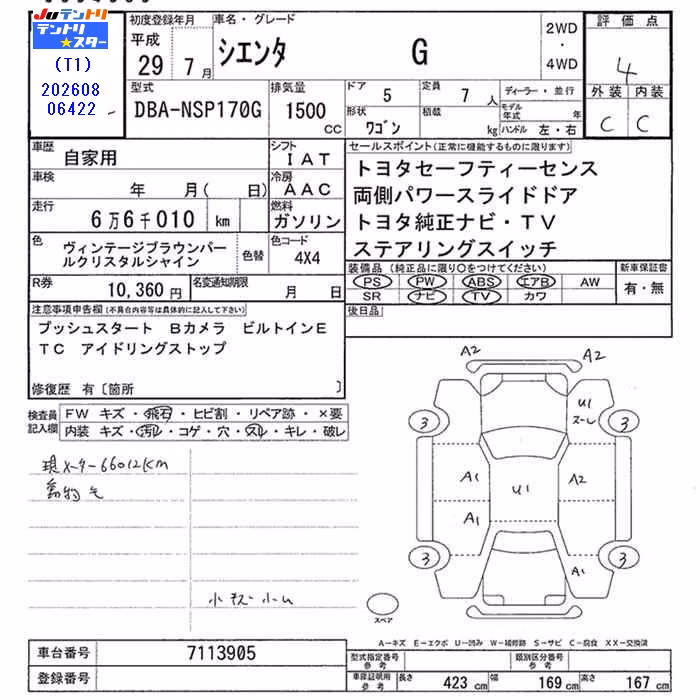 Juテントリ
テントリ★スター
(T1)
202608
06422
初度登録年月
平成
29年7月
車名・グレード
シエンタ G
2WD
・
4WD
評価点
4
外装 内装
C C
型式
DBA-NSP170G
排気量
1500
CC
ドア
5
定員
7人
形状
ワゴン
積載
kg
ディーラー・並行
モデル年式 年
ハンドル 左・右
車歴
自家用
シフト
IAT
車検
年 月( 日)
冷房
AAC
走行
6万6千010 km
燃料
ガソリン
色
ヴィンテージブラウンパー
ルクリスタルシャイン
色替
色コード
4X4
R券
10,360円
名変通知期限
月 日
セールスポイント(正常に機能するものに限ります)
トヨタセーフティーセンス
両側パワースライドドア
トヨタ純正ナビ・TV
ステアリングスイッチ
装備品(純正品に限り○をつけてください)
PS PW ABS エアB AW
SR ナビ TV カワ
新車保証書
有・無
後日品
注意事項申告欄(不具合内容等は具体的に記入して下さい)
プッシュスタート Bカメラ ビルトインE
TC アイドリングストップ
修復歴 有〔箇所 〕
検査員
記入欄
FW キズ・飛石・ヒビ割・リペア跡・×要
内装 キズ・汚レ・コゲ・穴・スレ・キレ・破レ
現メーター66012KM
動物毛
小キズ小凹
A2
A2
U1
スーレ
3
3
A1
A2
U1
A1
3
A1
3
スペア
A-キズ E-エクボ U-凹み W-補修跡 S-サビ C-腐食 XX-交換済
車台番号
7113905
登録番号
型式指定番号
参考
類別区分番号
参考
車庫証明用
参考
長さ 423cm
幅 169cm
高さ 167cm